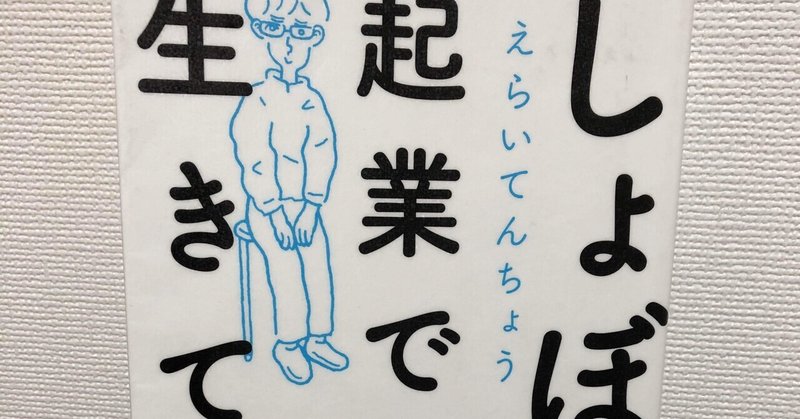 しょぼ
えらいてんちょう
起業で
生きて